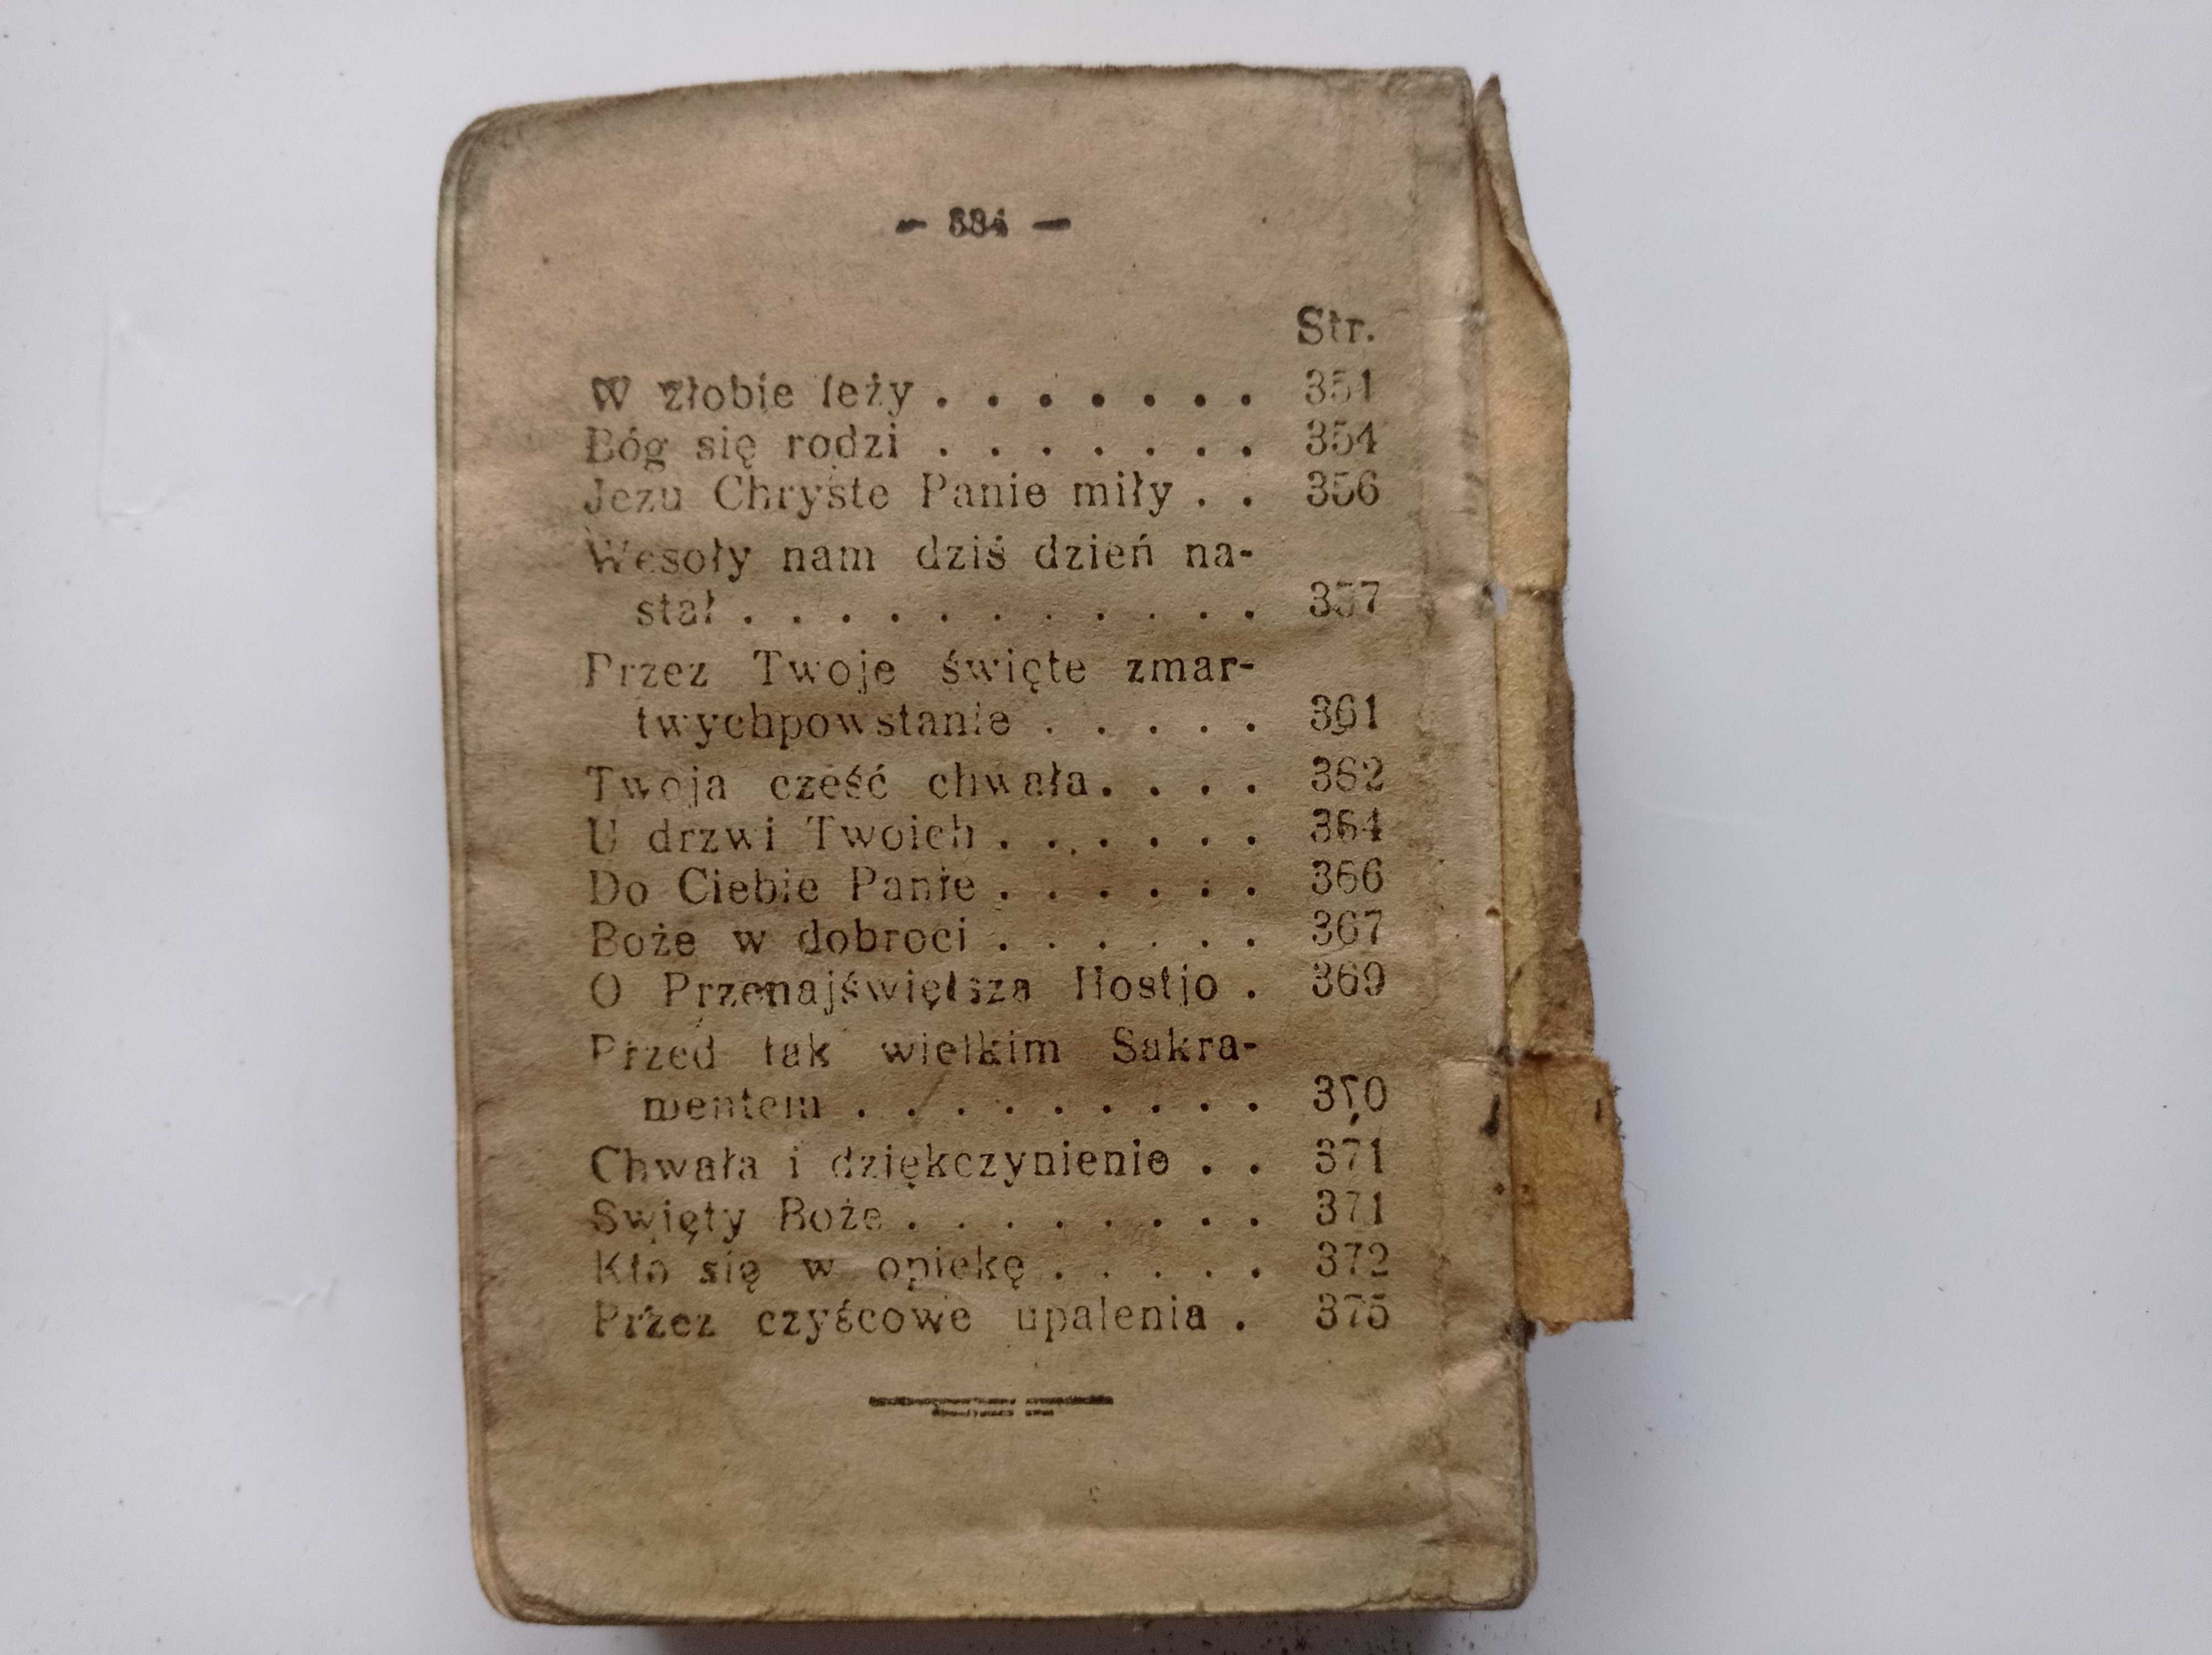 — 384 —
Str.
W żłobie leży . . . . . . . 351
Bóg się rodzi . . . . . . . 354
Jezu Chryste Panie miły . . 356
Wesoły nam dziś dzień na-
stał . . . . . . . . . . . 357
Przez Twoje święte zmar-
twychpowstanie . . . . . 361
Twoja cześć chwała . . . . 362
U drzwi Twoich . . . . . . 364
Do Ciebie Panie . . . . . . 366
Boże w dobroci . . . . . . 367
O Przenajświętsza Hostjo . 369
Przed tak wielkim Sakra-
mentem . . . . . . . . . 370
Chwała i dziękczynienie . . 371
Święty Boże . . . . . . . . 371
Kto się w opiekę . . . . . 372
Przez czyścowe upalenia . 375